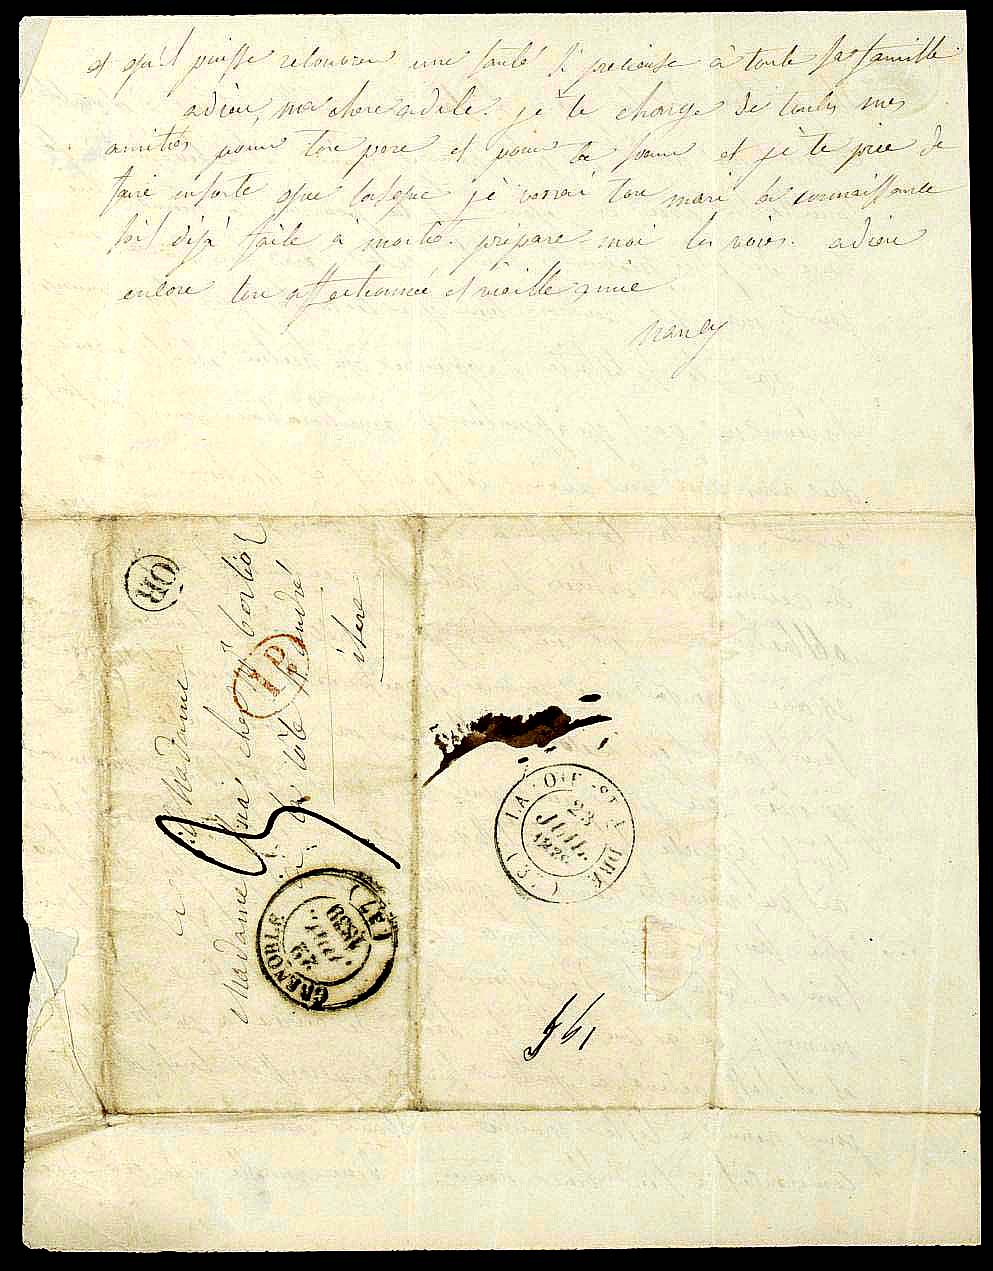 et qu'il puisse retrouver une santé si precieuse à toute sa famille
adieu, ma chere adele. je te charge de toutes mes
amitiés pour ton pere et pour ta soeur et je te prie de
faire ensorte que lorsque je verrai ton mari la connaissance
soit déjà faite à moitié. prépare-moi les voies. adieu
encore ton affectionnée et vieille amie
nancy
OR
à Madame
Madame suat chez mr berlioz
à la Côte St andré
isère
1D
GRENOBLE (37)
JUIL.
1839
LA COTE-ST-ANDRE
23
JUIL.